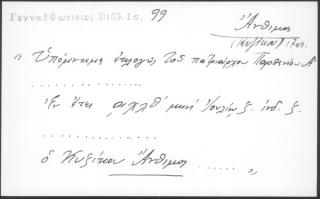 Γενναδ Φωτικιος Βιβλ ισ. 99
Ἄνθιμος
(Κυζίκου)
„ Ὑπόμνημα ἐκλογῆς τοῦ πατριάρχου Παρθενίου Α'
..............
ἐν ἔτει αχλθ' μηνὶ Ἰουλίῳ ζ. ἰνδ. ζ.
..............
ὁ Κυζίκου Ἄνθιμος ...... „